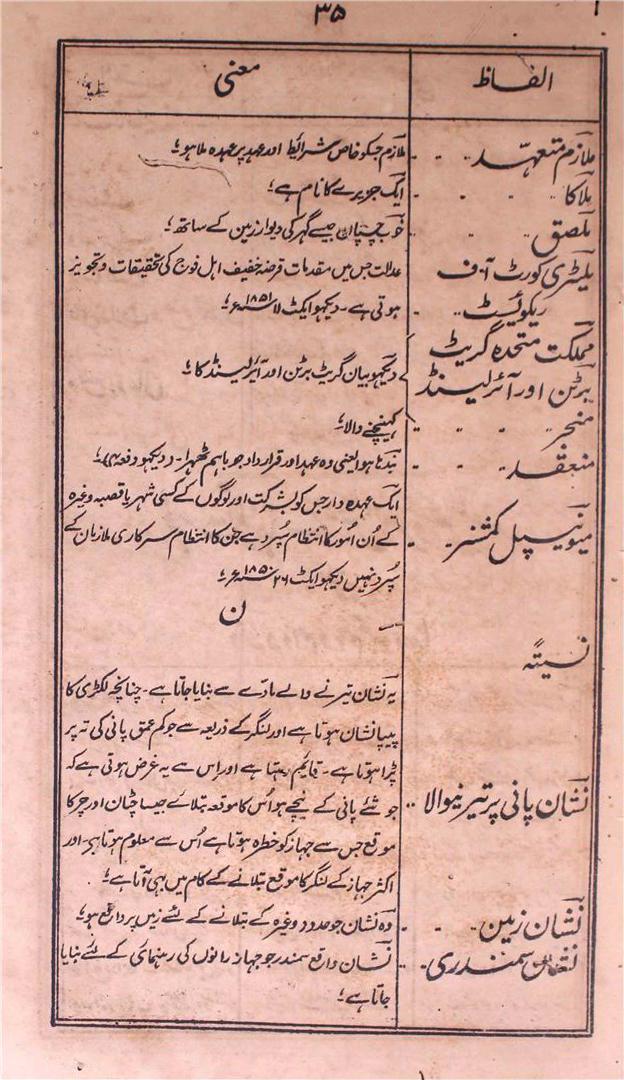 ۳۵
الفاظ معنی
ملازم متعہد ملازم جسکو خاص شرائط اور عہد پر عہدہ ملا ہو؛
ملاکا ایک جزیرے کا نام ہے؛
ملصق خوب چسپان جیسے گہر کی دیوار زمین کے ساتھ؛
ملیٹری کورٹ آف عدالت جس میں مقدمات قرضہ خفیف اہل فوج کی تحقیقات و تجویز
ریکوئسٹ ہوتی ہے۔ دیکھو ایکٹ ۱۸۵۱؁ء؛
مملکت متحدہ گریٹ
برٹن اور آئرلینڈ دیکھو بیان گریٹ برٹن اور آئرلینڈ کا؛
منجر کہینچنے والا؛
منعقد بندہا ہوا یعنی وہ عہد اور قرار داد جو باہم ٹھہرا۔ دیکھو دفعہ
ایک عہدہ دار جس کو بشرکت اور لوگوں کے کسی شہر یا قصبہ وغیرہ
میونیسپل کمشنر کے اُن اُمور کا انتظام سپرد ہے جن کا انتظام سرکاری ملازمان کے
سپرد نہیں دیکھو ایکٹ ۲۶ ۱۸۵۰؁ء؛
ن
نسیتہ
یہ نشان تیرنے والے مادّے سے بنایا جاتا ہے۔ چنانچہ لکڑی کا
پیپا نشان ہوتا ہے اور لنگر کے ذریعہ سے جو کم عمق پانی کی تہ پر
پڑا ہوتا ہے۔ قایٔم رہتا ہے اور اس سے یہ غرض ہوتی ہے کہ
نشان پانی پر تیرنیوالا جو شئے پانی کے نیچے ہو اُس کا موقعہ بتلائے جیسا چٹان اور چر کا
موقع جس سے جہاز کو خطرہ ہوتا ہے اُس سے معلوم ہوتا ہی۔ اور
اکثر جہاز کے لنگر کا موقع بتلانے کے کام میں بہی آتا ہے؛
نشان زمین وہ نشان جو حدود وغیرہ کے بتلانے کے لئے زمیں پر واقع ہو؛
نشان سمندری نشان واقع سمندر جو جہاز رانوں کی رہنمائی کے لئے بنایا
جاتا ہے؛